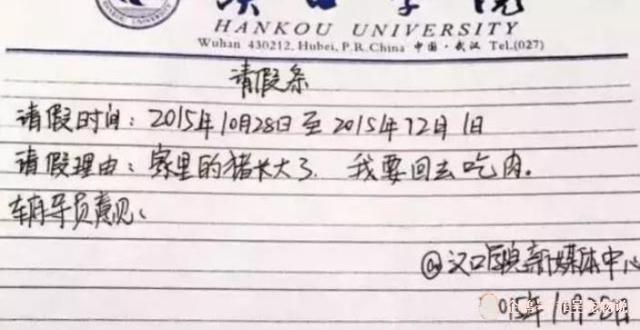 HANKOU UNIVERSITY
Wuhan 430212, Hubei, P.R.China 中国·武汉 Tel.(027)
请假条
请假时间：2015年10月28日至2015年12月1日
请假理由：家里的猪长大了，我要回去吃肉。
辅导员意见：
@汉口学院新媒体中心
015年10月28日